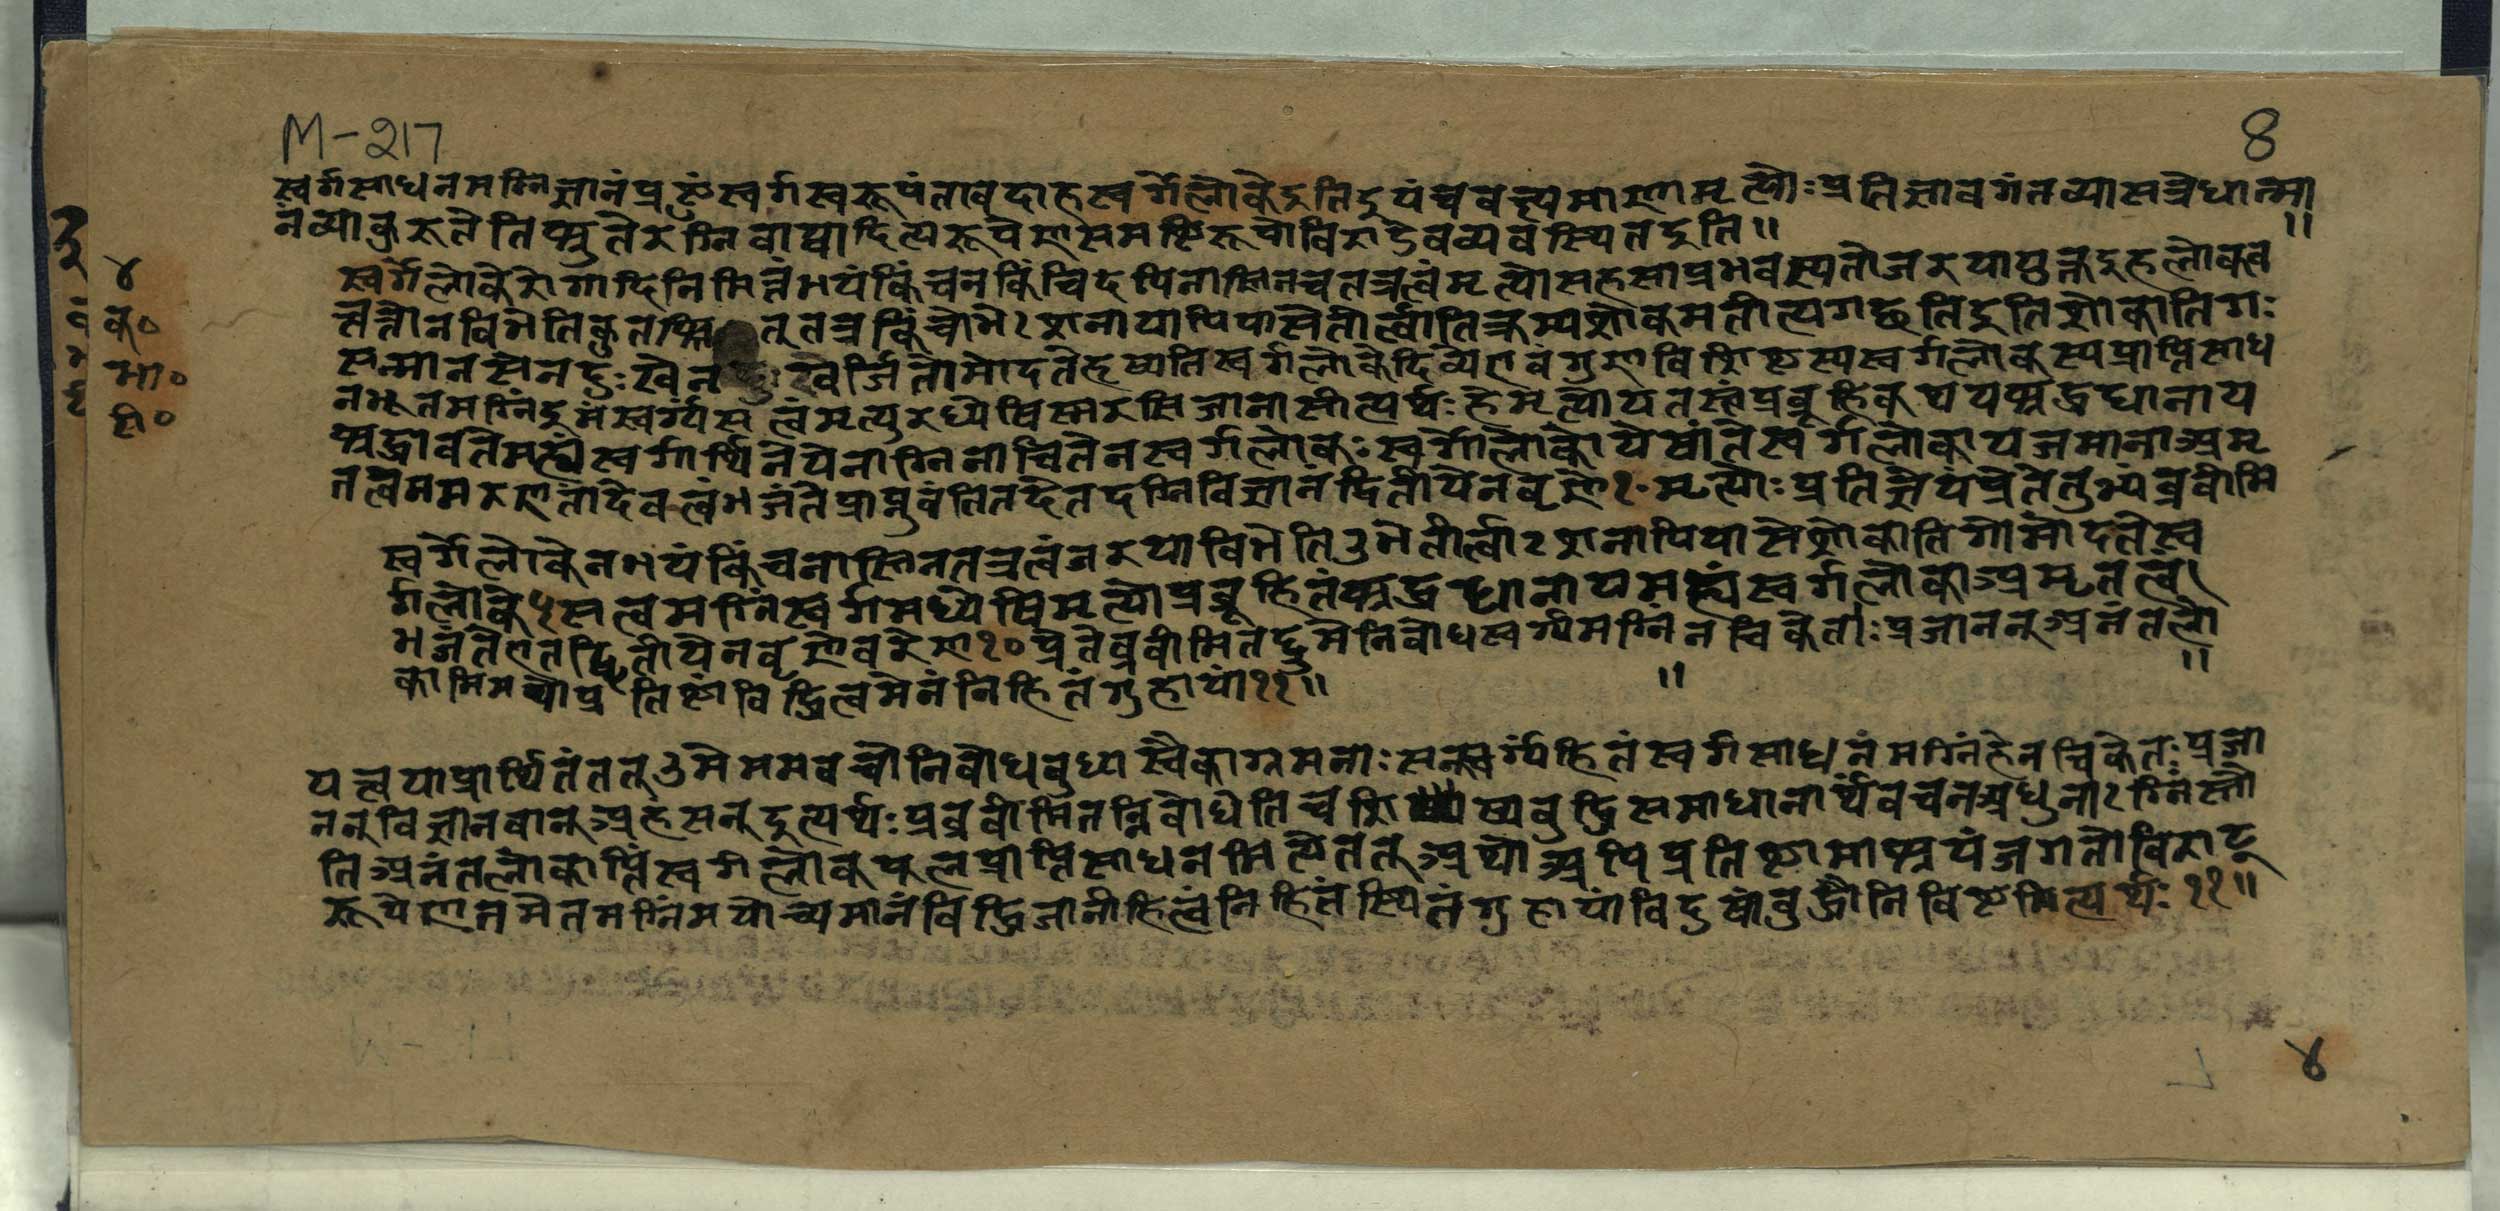 M-217
8
स्वर्गसाधनमग्निज्ञानंप्रष्टुंस्वर्गस्वरूपंतावदाहस्वर्गेलोकेइतिइयंचवक्ष्यमाणामृत्योःप्रतिज्ञावगंतव्यासचैधात्मा
नंव्याकुरुतेतिश्रुतेरग्निवाय्वादित्यरूपेणसमष्टिरूपोविराडेवव्यवस्थितइति॥ ॥
४
क०
भा०
टी०
स्वर्गेलोकेरोगादिनिमित्तंभयंकिंचनकिंचिदपिनास्तिनचतत्रत्वंमृत्योसहसाप्रभवस्यतोजरयायुक्तइहलोकव
त्त्वत्तोनबिभेतिकुतश्चि तुतत्रकिंचोभेऽशनायापिपासेतीर्त्वातिक्रम्यशोकमतीत्यगछतिइतिशोकातिगः
सन्मानसेनदुःखेन वर्जितोमोदतेहृष्यतिस्वर्गलोकेदिव्येएवंगुणविशिष्टस्यस्वर्गलोकस्यप्राप्तिसाध
नभूतमग्निंइमंस्वर्ग्यंसत्वंमृत्युरध्येषिस्मरसिजानासीत्यर्थःहेमृत्योयतस्त्वंप्रब्रूहिकथयश्रद्दधानाय
श्रद्धावतेमह्यंस्वर्गार्थिनेयेनाग्निनाचितेनस्वर्गलोकाःस्वर्गोलोकोयेषांतेस्वर्गलोकायजमानाअमृ
तत्वममरणतांदेवत्वंभजंतेप्राप्नुवंतितदेतदग्निविज्ञानंद्वितीयेनवृणेऽमृत्योःप्रतिज्ञेयंप्रतेतुभ्यंब्रवीमि
स्वर्गेलोकेनभयंकिंचनास्तिनतत्रत्वंनजरयाबिभेतिउभेतीर्त्वाऽशनापिपासेशोकातिगोमोदतेस्व
र्गलोके९सत्वमग्निंस्वर्ग्यमध्येषिमृत्योप्रब्रूहितंश्रद्दधानायमह्यंस्वर्गलोकाअमृतत्वं
भजंतेएतद्द्वितीयेनवृणेवरेण१०प्रतेब्रवीमितदुमेनिबोधस्वर्ग्यमग्निंनचिकेतःप्रजानन्अनंतलो
काप्तिमथोप्रतिष्ठांविद्धित्वमेनंनिहितंगुहायां११॥ ॥ ॥
यत्त्वयाप्रार्थितंतत्उमेममवचोनिबोधबुध्यस्वैकाग्रमनाःसन्स्वर्ग्यंहितंस्वर्गसाधनंमग्निंहेनचिकेतःप्रजा
नन्विज्ञानवान्अहंसन्इत्यर्थःप्रब्रवीमितन्निबोधेतिचशिष्यबुद्धिसमाधानार्थंवचनंअधुनाऽग्निंस्तौ
तिअनंतलोकाप्तिंस्वर्गलोकफलप्राप्तिसाधनमित्येतत्अथोअपिप्रतिष्ठामाश्रयंजगतोविराट्
रूपेणतमेतमग्निंमयोच्यमानंविद्धिजानीहित्वंनिहितंस्थितंगुहायांविदुषांबुद्धौनिविष्टमित्यर्थः११॥
४